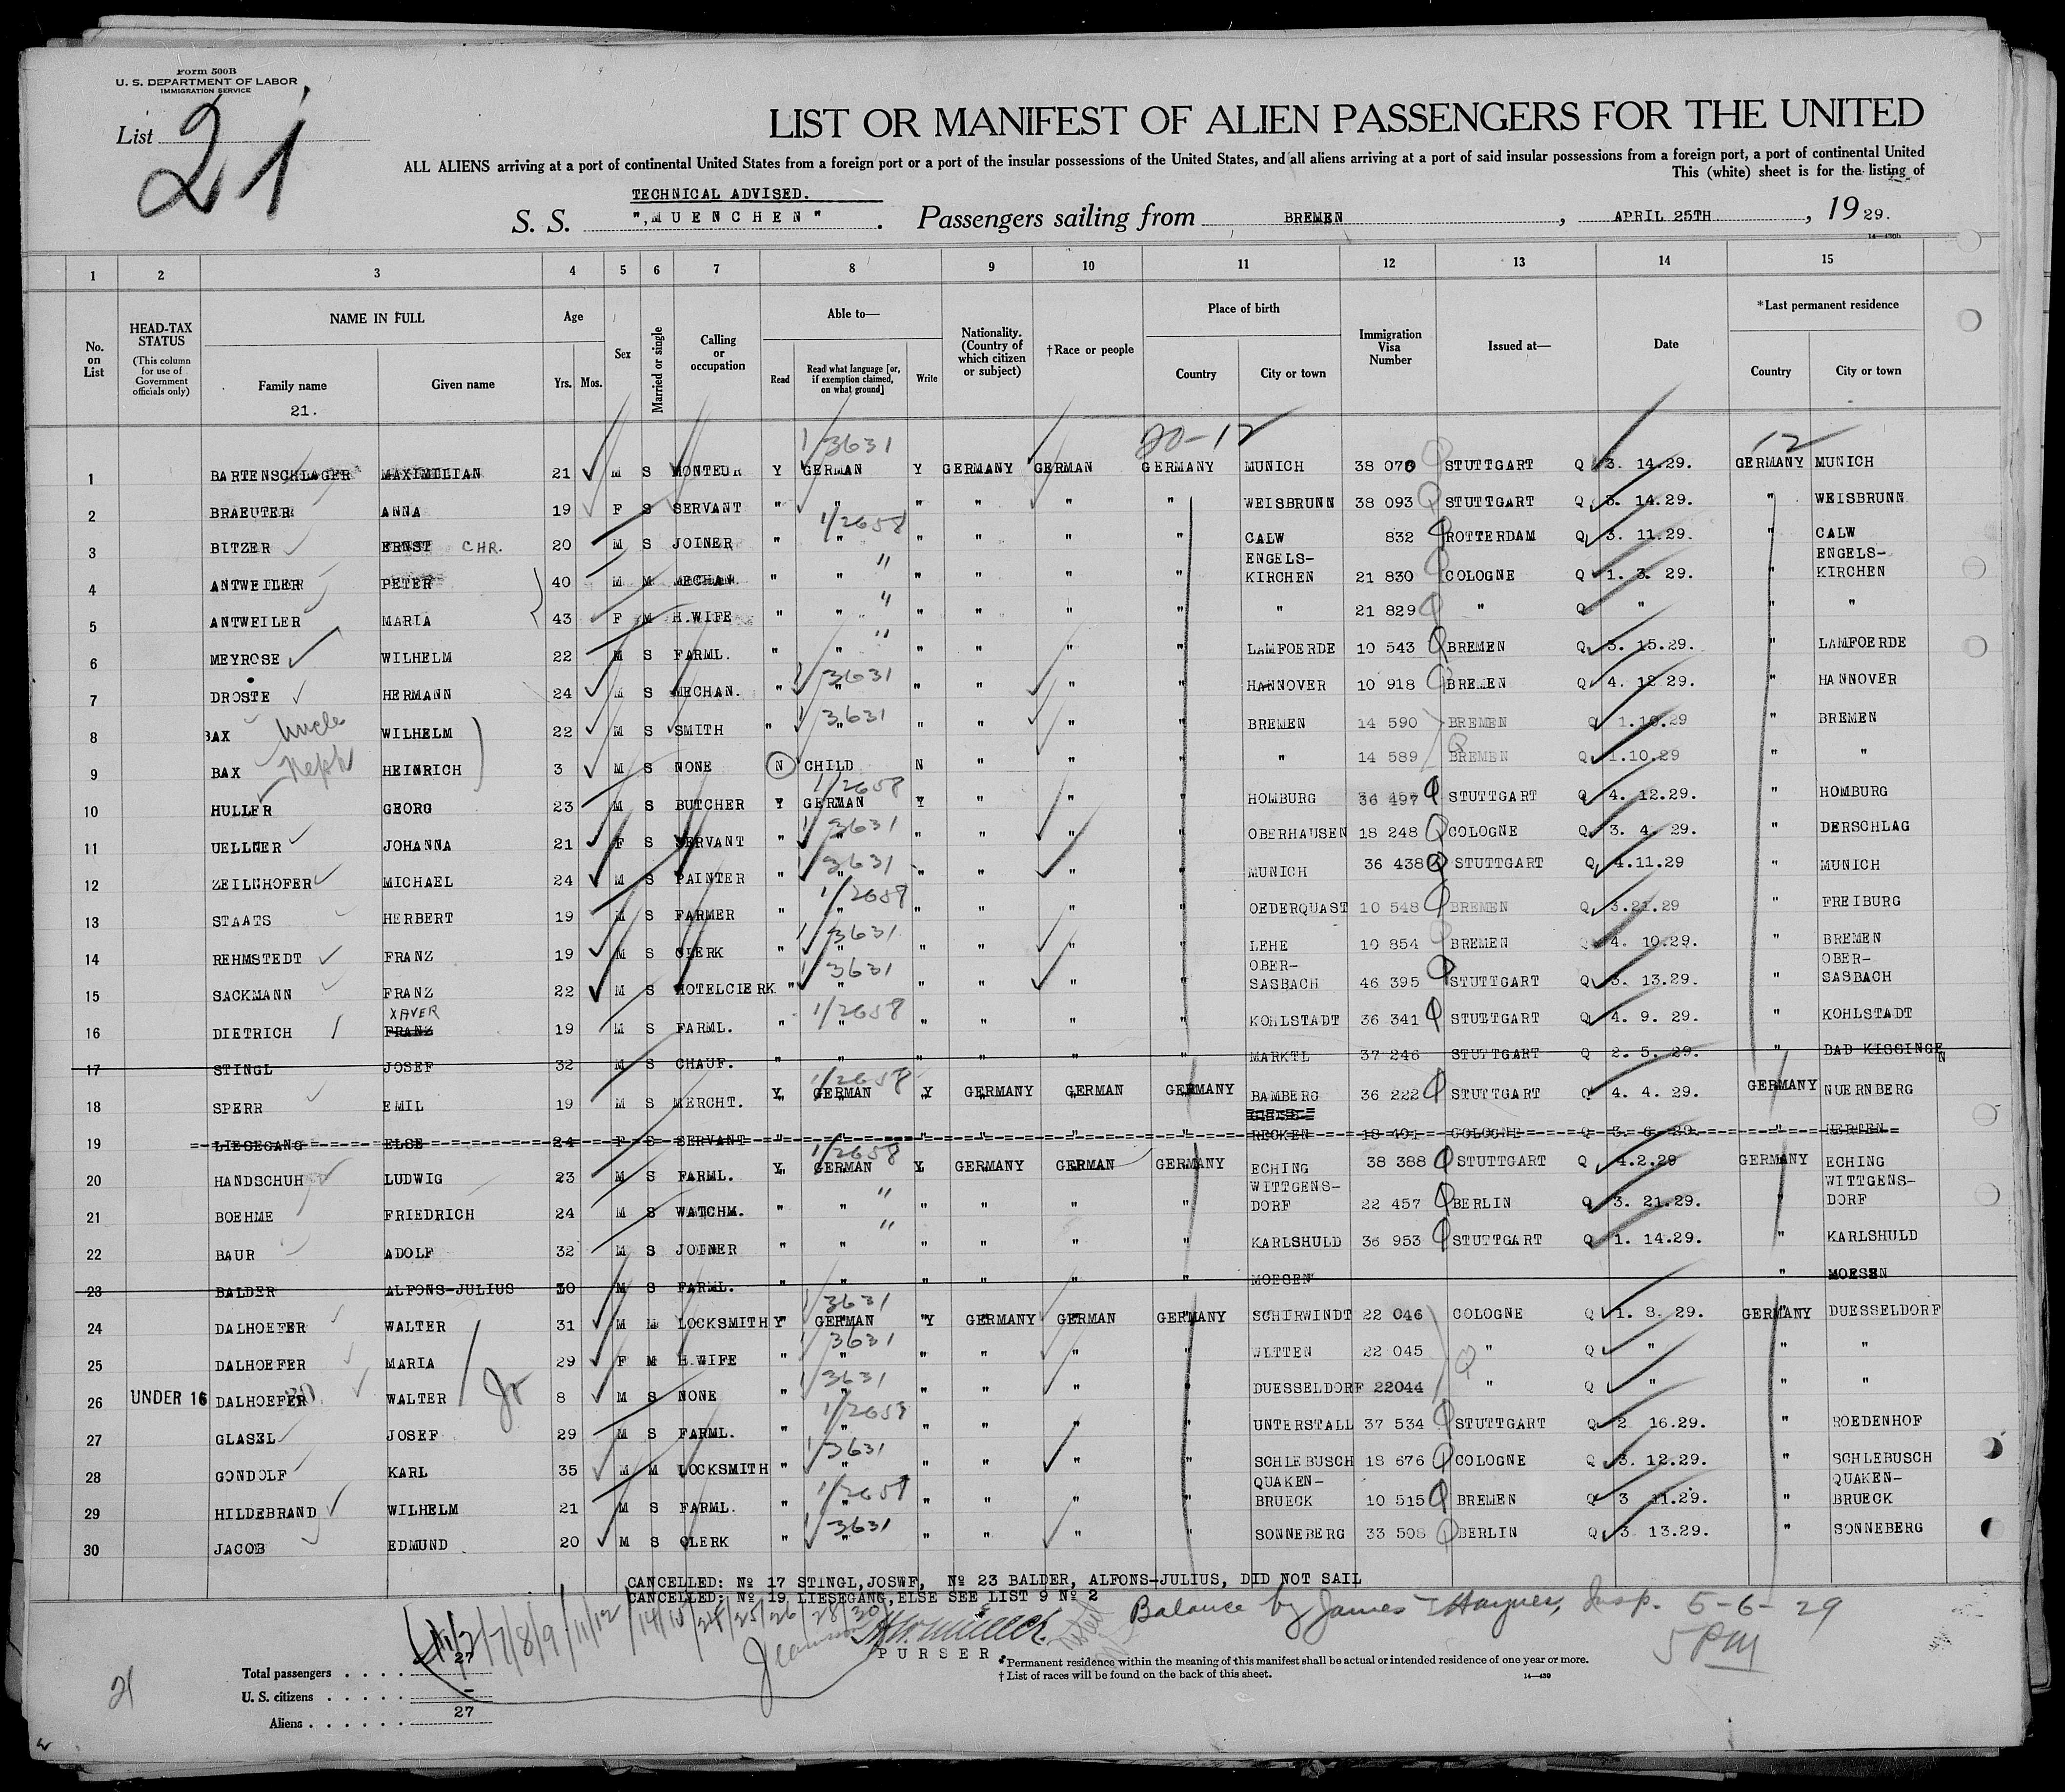 Form 500B
U. S. DEPARTMENT OF LABOR
IMMIGRATION SERVICE
List 21
LIST OR MANIFEST OF ALIEN PASSENGERS FOR THE UNITED
ALL ALIENS arriving at a port of continental United States from a foreign port or a port of the insular possessions of the United States, and all aliens arriving at a port of said insular possessions from a foreign port, a port of continental United
This (white) sheet is for the listing of
TECHNICAL ADVISED.
S. S. "MUENCHEN". Passengers sailing from BREMEN, APRIL 25TH, 1929.
14—430b
1 2 3 4 5 6 7 8 9 10 11 12 13 14 15
No. on List
HEAD-TAX STATUS (This column for use of Government officials only)
NAME IN FULL
Family name
Given name
21.
Age
Yrs. Mos.
Sex
Married or single
Calling or occupation
Able to—
Read
Read what language [or, if exemption claimed, on what ground]
Write
Nationality. (Country of which citizen or subject)
†Race or people
Place of birth
Country
City or town
Immigration Visa Number
Issued at—
Date
*Last permanent residence
Country
City or town
1/3631 20-12 12
1 BARTENSCHLAGER MAXIMILIAN 21 M S MONTEUR Y GERMAN Y GERMANY GERMAN GERMANY MUNICH 38 070 STUTTGART Q 3. 14.29. GERMANY MUNICH
2 BRAEUTER ANNA 19 F S SERVANT " " " " " " WEISBRUNN 38 093 STUTTGART Q 3. 14.29. " WEISBRUNN
1/2658
3 BITZER ERNST CHR. 20 M S JOINER " " " " " " CALW 832 ROTTERDAM Q 3. 11.29. " CALW
4 ANTWEILER PETER 40 M M MECHAN. " " " " " " ENGELS-KIRCHEN 21 830 COLOGNE Q 1. 3. 29. " ENGELS-KIRCHEN
5 ANTWEILER MARIA 43 F M H.WIFE " " " " " " " 21 829 " Q " " "
6 MEYROSE WILHELM 22 M S FARML. " " " " " " LAMFOERDE 10 543 BREMEN Q 3. 15.29. " LAMFOERDE
1/3631
7 DROSTE HERMANN 24 M S MECHAN. " " " " " " HANNOVER 10 918 BREMEN Q 4. 12 29. " HANNOVER
1/3631
8 BAX Uncle WILHELM 22 M S SMITH " " " " " " BREMEN 14 590 BREMEN Q 1.10.29 " BREMEN
9 BAX Neph HEINRICH 3 M S NONE N CHILD N " " " " 14 589 BREMEN Q 1.10.29 " "
1/2658
10 HULLER GEORG 23 M S BUTCHER Y GERMAN Y " " " HOMBURG 36 497 STUTTGART Q 4. 12.29. " HOMBURG
1/3631
11 UELLNER JOHANNA 21 F S SERVANT " " " " " " OBERHAUSEN 18 248 COLOGNE Q 3. 4. 29. " DERSCHLAG
1/3631
12 ZEILNHOFER MICHAEL 24 M S PAINTER " " " " " " MUNICH 36 438 STUTTGART Q 4.11.29 " MUNICH
1/2658
13 STAATS HERBERT 19 M S FARMER " " " " " " OEDERQUAST 10 548 BREMEN Q 3.21.29 " FREIBURG
1/3631
14 REHMSTEDT FRANZ 19 M S CLERK " " " " " " LEHE 10 854 BREMEN Q 4. 10.29. " BREMEN
1/3631
15 SACKMANN FRANZ 22 M S HOTELCLERK " " " " " " OBER-SASBACH 46 395 STUTTGART Q 3. 13.29. " OBER-SASBACH
1/2658
16 DIETRICH XAVER FRANZ 19 M S FARML. " " " " " " KOHLSTADT 36 341 STUTTGART Q 4. 9. 29. " KOHLSTADT
17 STINGL JOSEF 32 M S CHAUF. " " " " " " MARKTL 37 246 STUTTGART Q 2. 5. 29. " BAD KISSINGEN
1/2658
18 SPERR EMIL 19 M S MERCHT. Y GERMAN Y GERMANY GERMAN GERMANY BAMBERG 36 222 STUTTGART Q 4. 4. 29. GERMANY NUERNBERG
19 LIESEGANG ELSE 24 F S SERVANT " " " " " " RECKEN 18 491 COLOGNE Q 3. 6. 29. " HERTEN
1/2658
20 HANDSCHUH LUDWIG 23 M S FARML. Y GERMAN Y GERMANY GERMAN GERMANY ECHING 38 388 STUTTGART Q 4.2.29 GERMANY ECHING
21 BOEHME FRIEDRICH 24 M S WATCHM. " " " " " " WITTGENS-DORF 22 457 BERLIN Q 3. 21.29. " WITTGENS-DORF
22 BAUR ADOLF 32 M S JOINER " " " " " " KARLSHULD 36 953 STUTTGART Q 1. 14.29. " KARLSHULD
23 BALDER ALFONS-JULIUS 30 M S FARML. " " " " " " MOESEN " MOESEN
1/3631
24 DALHOEFER WALTER 31 M M LOCKSMITH Y GERMAN Y GERMANY GERMAN GERMANY SCHIRWINDT 22 046 COLOGNE Q 1. 8. 29. GERMANY DUESSELDORF
1/3631
25 DALHOEFER MARIA 29 F M H.WIFE " " " " " " WITTEN 22 045 " Q " " "
1/3631
26 UNDER 16 DALHOEFER WALTER Jr 8 M S NONE " " " " " " DUESSELDORF 22044 " Q " " "
1/2658
27 GLASEL JOSEF 29 M S FARML. " " " " " " UNTERSTALL 37 534 STUTTGART Q 2 16.29. " ROEDENHOF
1/3631
28 GONDOLF KARL 35 M M LOCKSMITH " " " " " " SCHLEBUSCH 18 676 COLOGNE Q 3. 12.29. " SCHLEBUSCH
1/2658
29 HILDEBRAND WILHELM 21 M S FARML. " " " " " " QUAKEN-BRUECK 10 515 BREMEN Q 3 11.29. " QUAKEN-BRUECK
1/3631
30 JACOB EDMUND 20 M S CLERK " " " " " " SONNEBERG 33 508 BERLIN Q 3 13.29. " SONNEBERG
CANCELLED: № 17 STINGL,JOSWF, № 23 BALDER, ALFONS-JULIUS, DID NOT SAIL
CANCELLED: № 19 LIESEGANG,ELSE SEE LIST 9 № 2
1/2/7/8/9/11/12/14/15/24/25/26/28/30
Balance by James I Haynes, Insp. 5-6-29
5 PM
PURSER
Total passengers . . . . 27
U. S. citizens . . . . . –
Aliens . . . . . . 27
*Permanent residence within the meaning of this manifest shall be actual or intended residence of one year or more.
† List of races will be found on the back of this sheet.
14—430
21